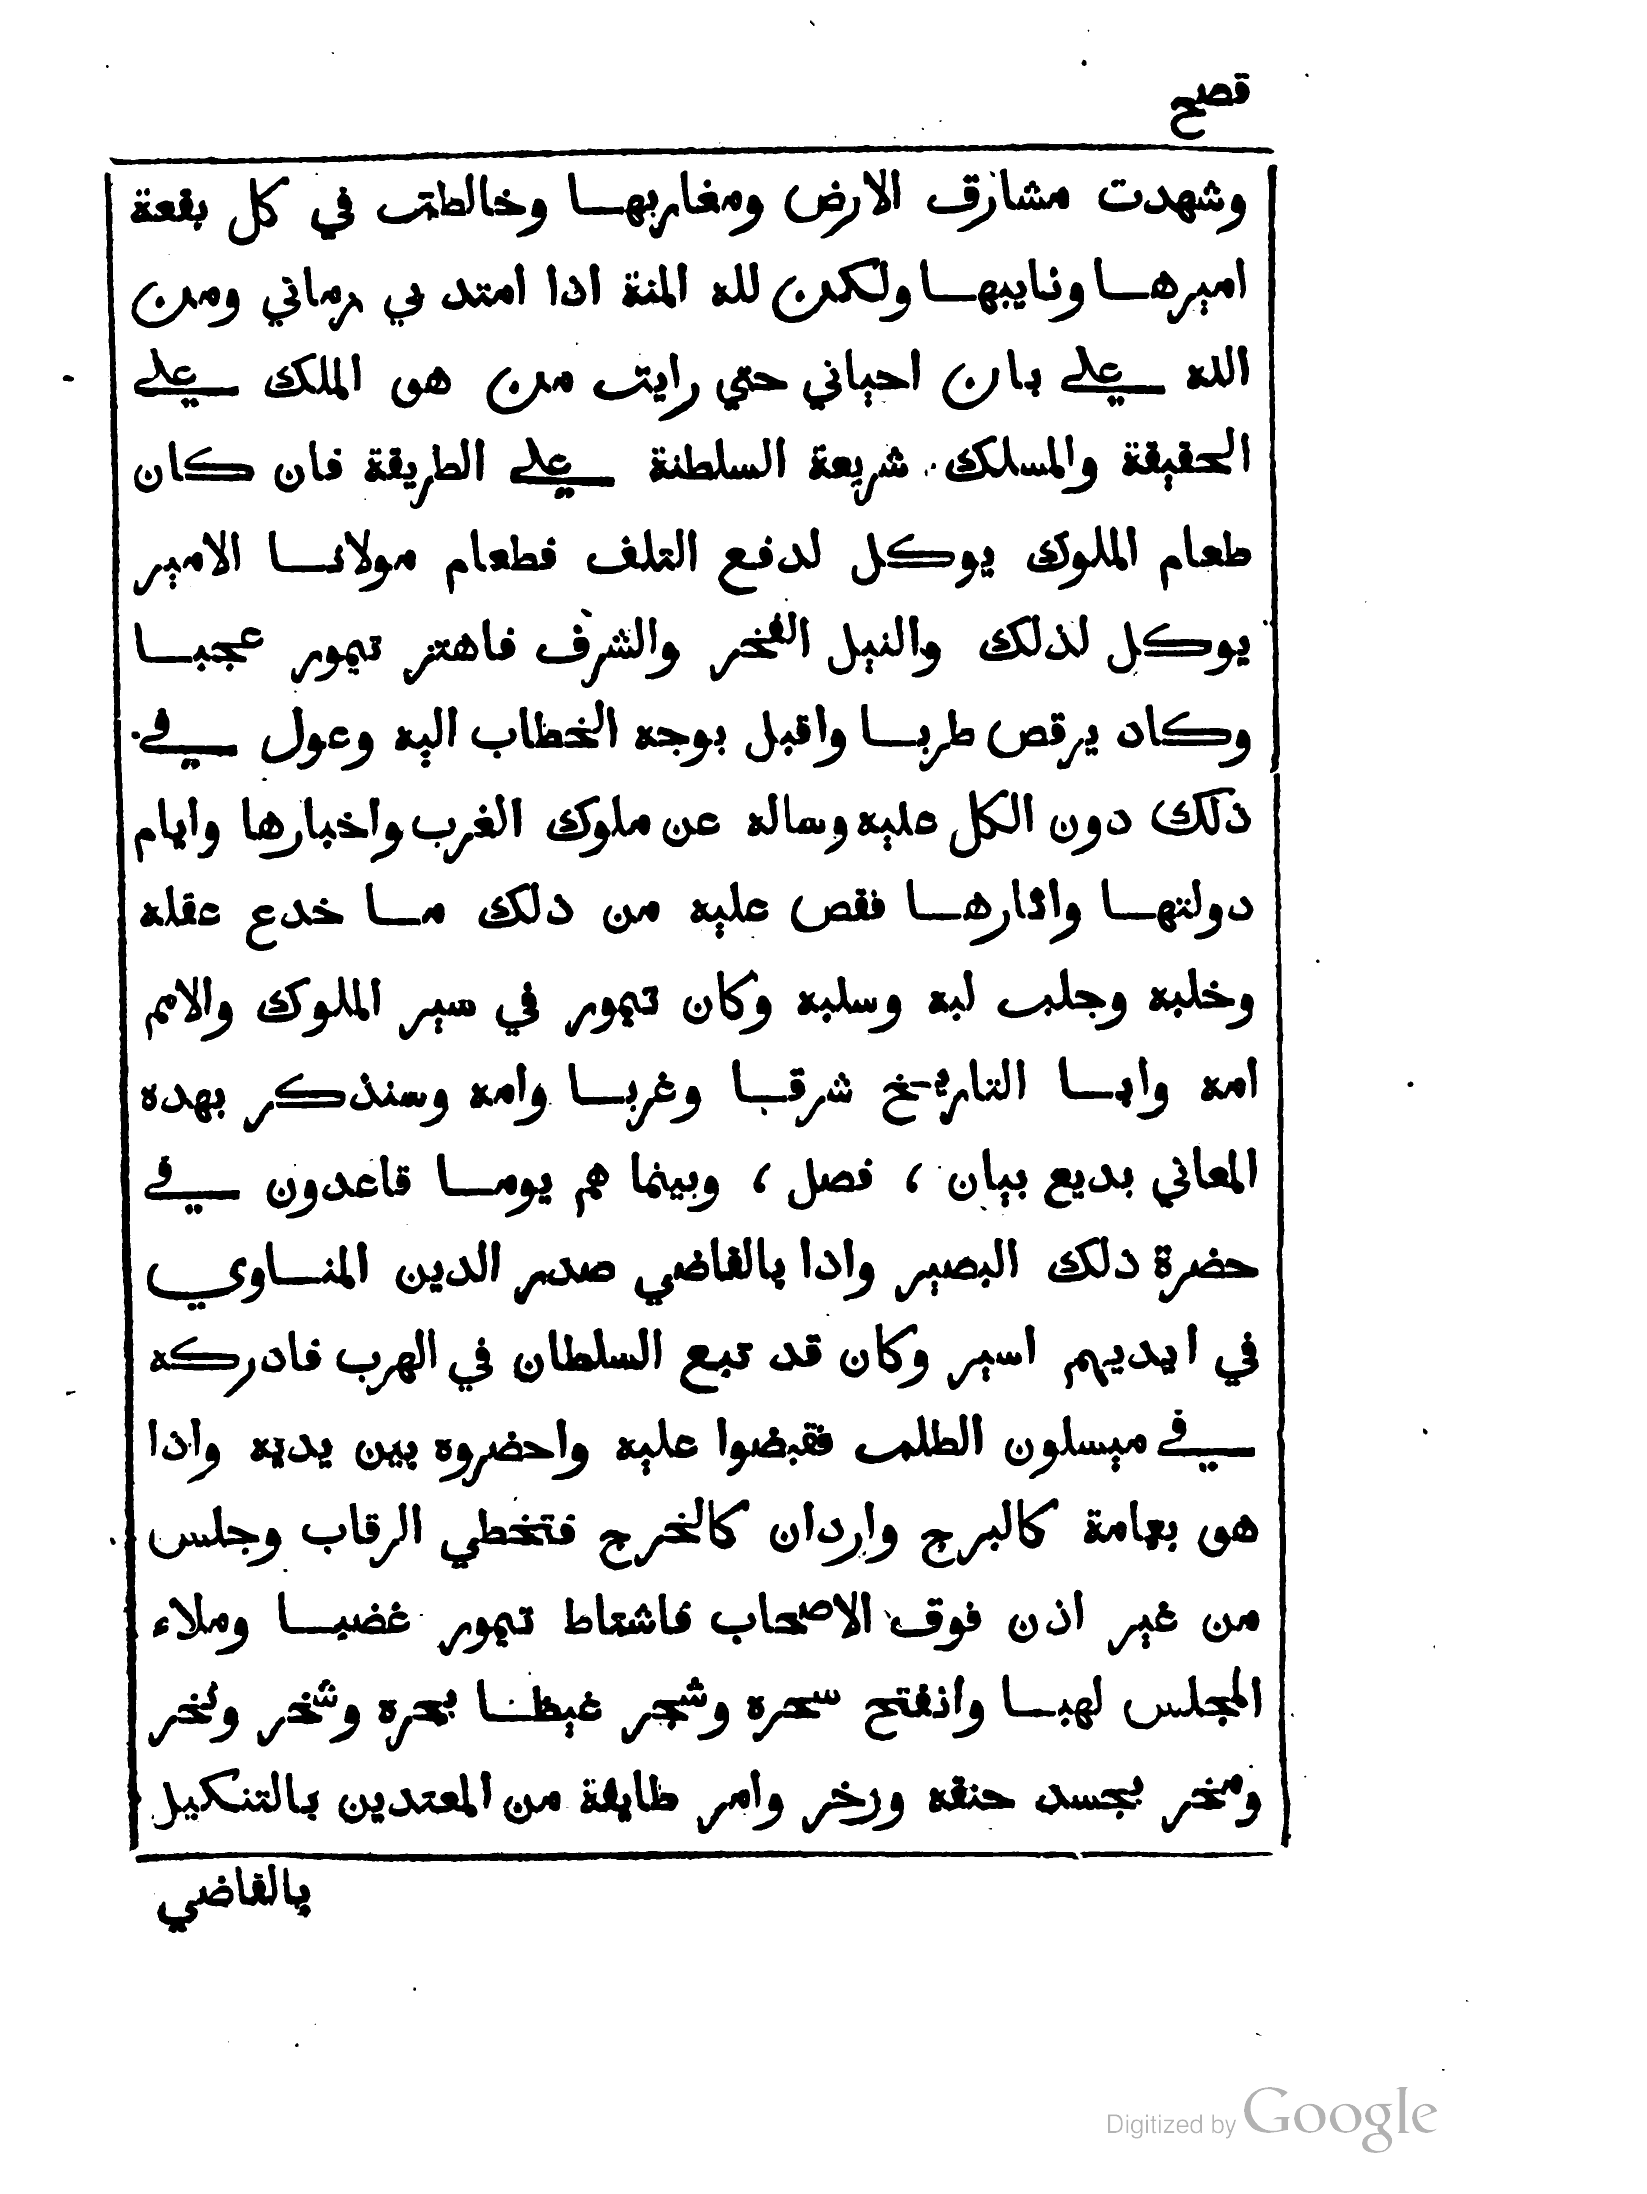 قصح
وشهدت مشارق الارض ومغاربهـا وخالطت في كل بقعة
اميرهـا ونايبهـا ولكن لله المنة اذا امتد بي زماني ومن
الله علي بان احياني حتي رايت من هو الملك علي
الحقيقة والمسلك شريعة السلطنة علي الطريقة فان كان
طعام الملوك يوكل لدفع التلف فطعام مولانـا الامير
يوكل لذلك والنيل الفخر والشرف فاهتز تيمور عجبـا
وكاد يرقص طربـا واقبل بوجه الخطاب اليه وعول في
ذلك دون الكل عليه وساله عن ملوك الغرب واخبارها وايام
دولتهـا واثارهـا فقص عليه من ذلك مـا خدع عقله
وخلبه وجلب لبه وسلبه وكان تيمور في سير الملوك والامم
امه وابـا التاريخ شرقـا وغربـا وامه وسنذكر بهده
المعاني بديع بيان ، فصل ، وبينما هم يومـا قاعدون في
حضرة ذلك البصير واذا بالقاضي صدر الدين المنـاوي
في ايديهم اسير وكان قد تبع السلطان في الهرب فادركه
في ميسلون الطلب فقبضوا عليه واحضروه بين يديه واذا
هو بعمامة كالبرج واردان كالخرج فتخطي الرقاب وجلس
من غير اذن فوق الاصحاب فاشتاط تيمور غضبـا وملاء
المجلس لهبـا وانفتح سحره وشجر غيظـا بحره وشخر ونخر
ومخر بجسد حنقه وزخر وامر طايفة من المعتدين بالتنكيل
بالقاضي
Digitized by Google